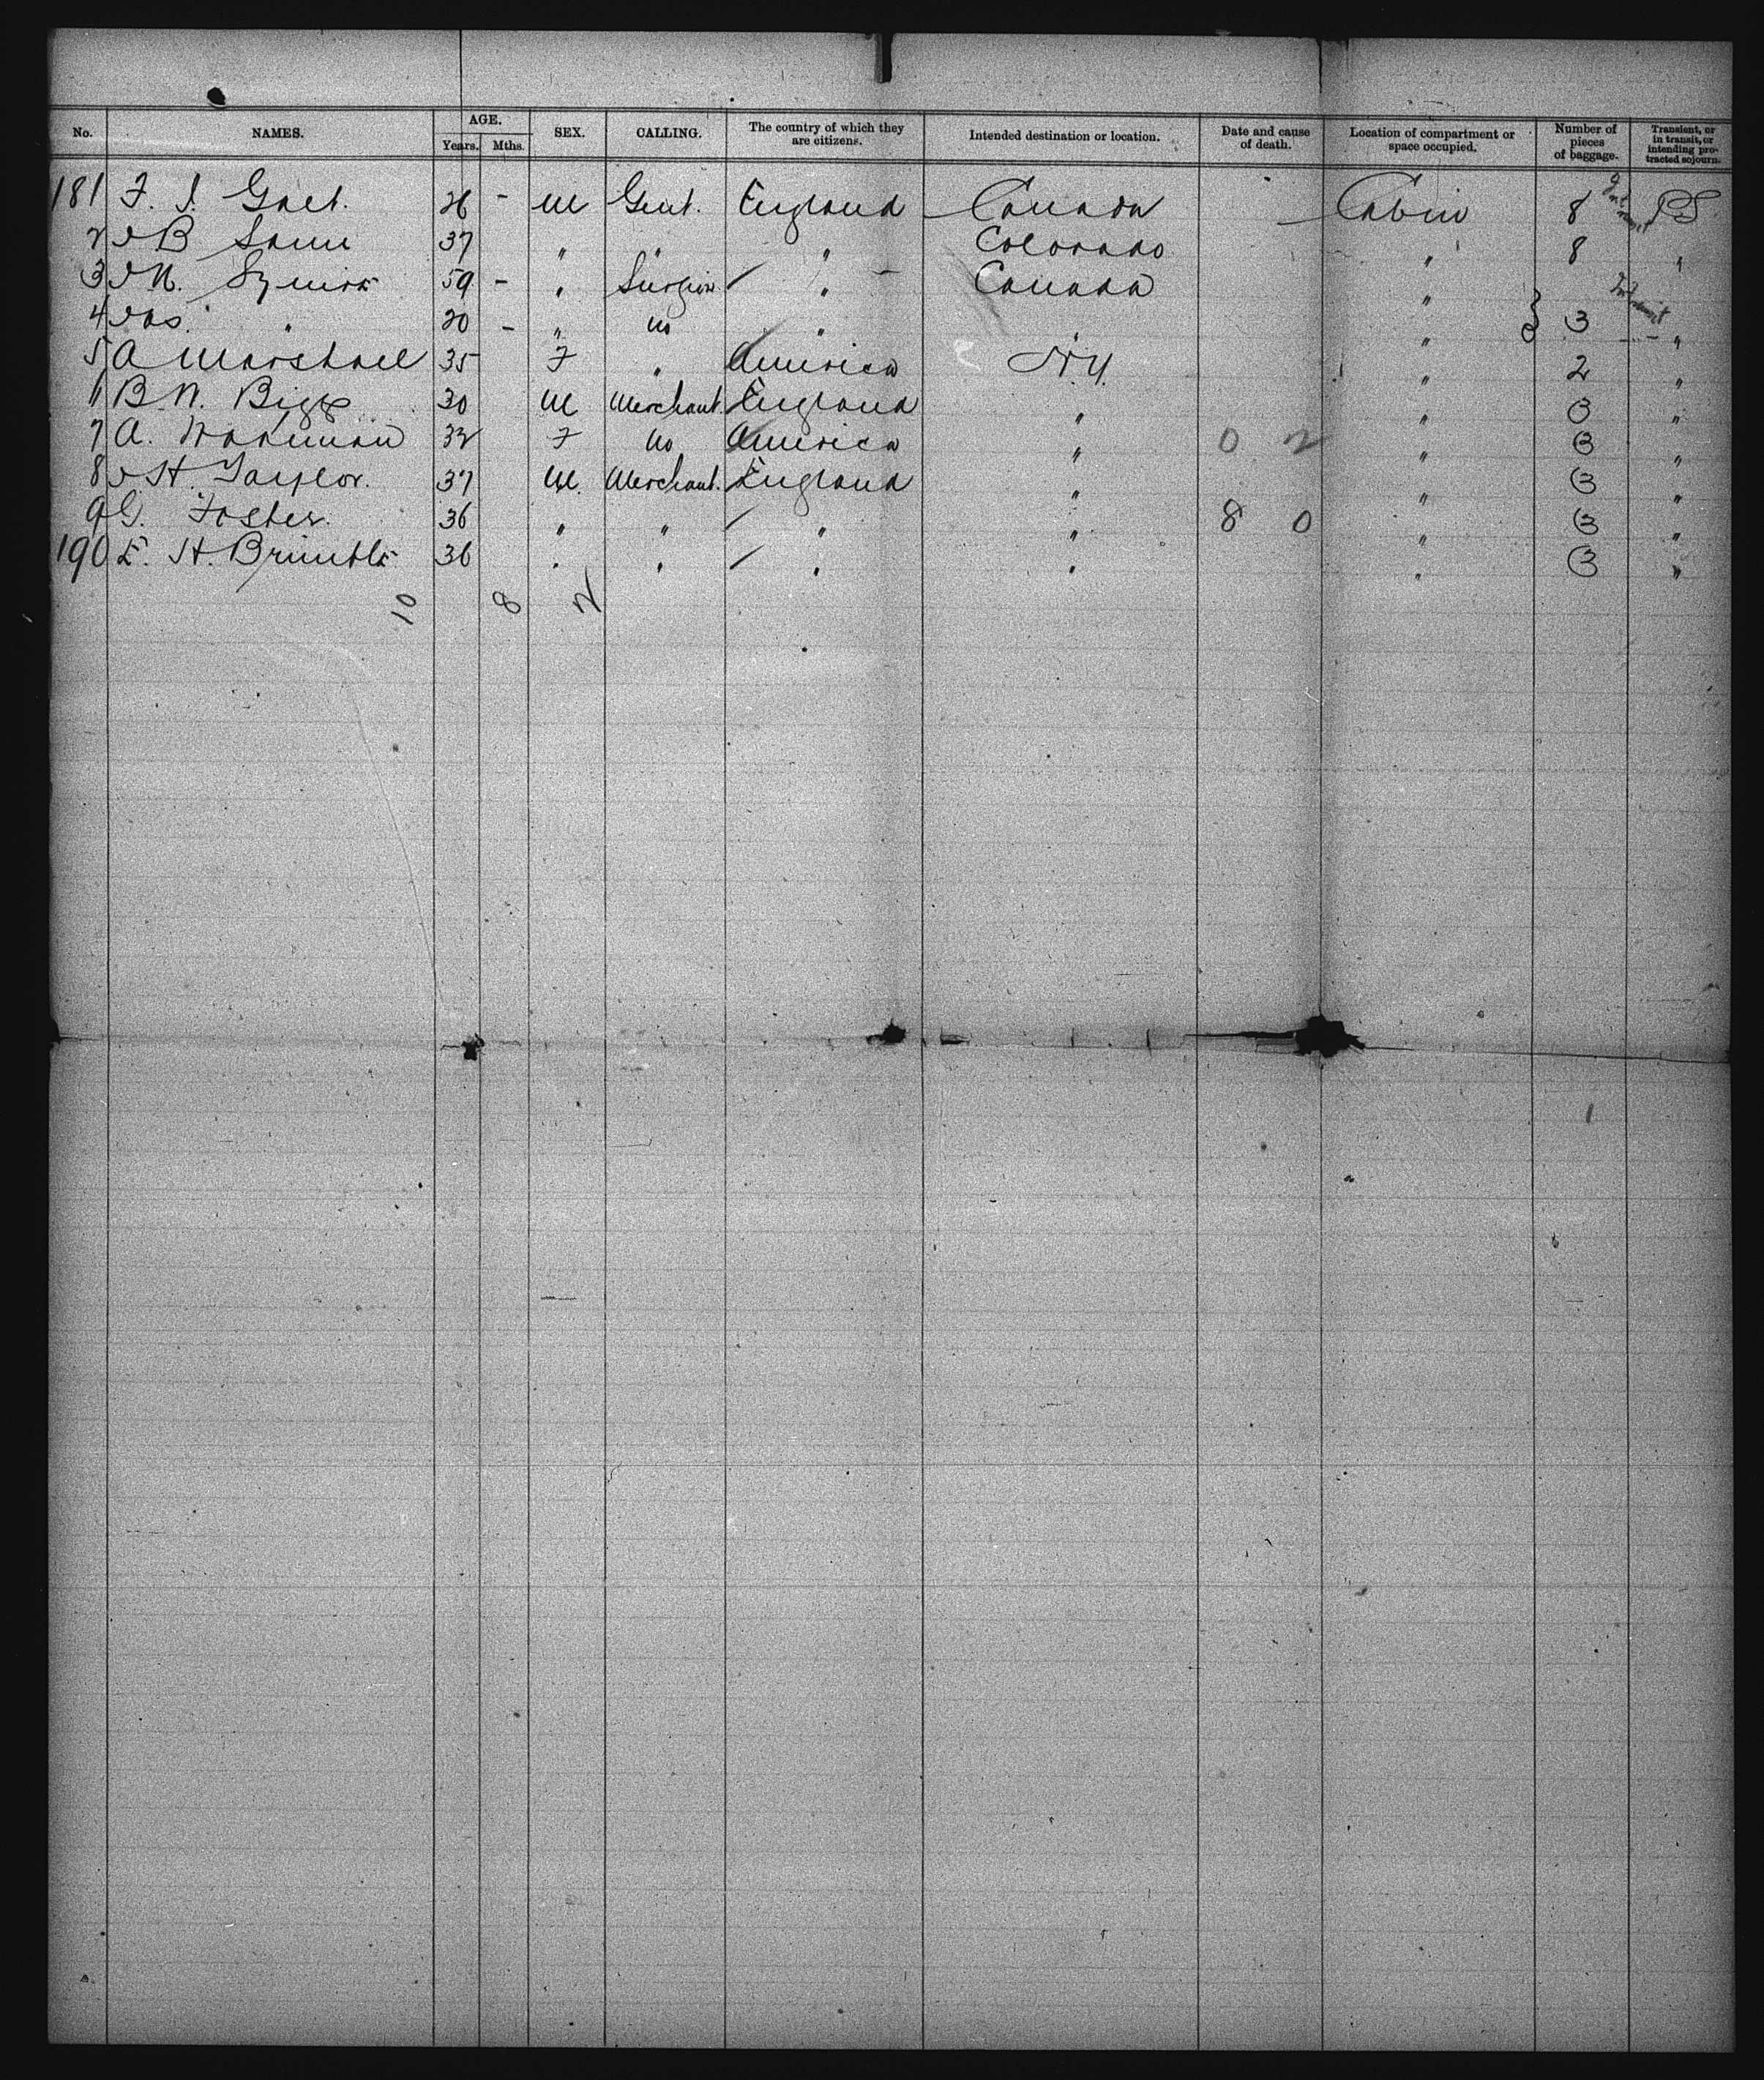 No. NAMES. AGE. Years. Mths. SEX. CALLING. The country of which they are citizens. Intended destination or location. Date and cause of death. Location of compartment or space occupied. Number of pieces of baggage. Transient, or in transit, or intending protracted sojourn.
181 F. J. 26 - M Gent. England Canada Cabin 8 In transit PS.
2 B 37 " " " Colorado " 8 "
3 59 - " Surgeon " Canada "
4 Jas. " 20 - " no " " } 3 In transit "
5 A Marshall 35 F " America N.Y. " 2 "
6 B. N. Bigg 30 M Merchant England " " 3 "
7 A. 32 F no America " 0 2 " 3 "
8 H. Taylor. 37 M. Merchant. England " " 3 "
9 G. Foster. 36 " " " " 8 0 " 3 "
190 E. H. Brimble 36 " " " " " 3 "
10 8 2